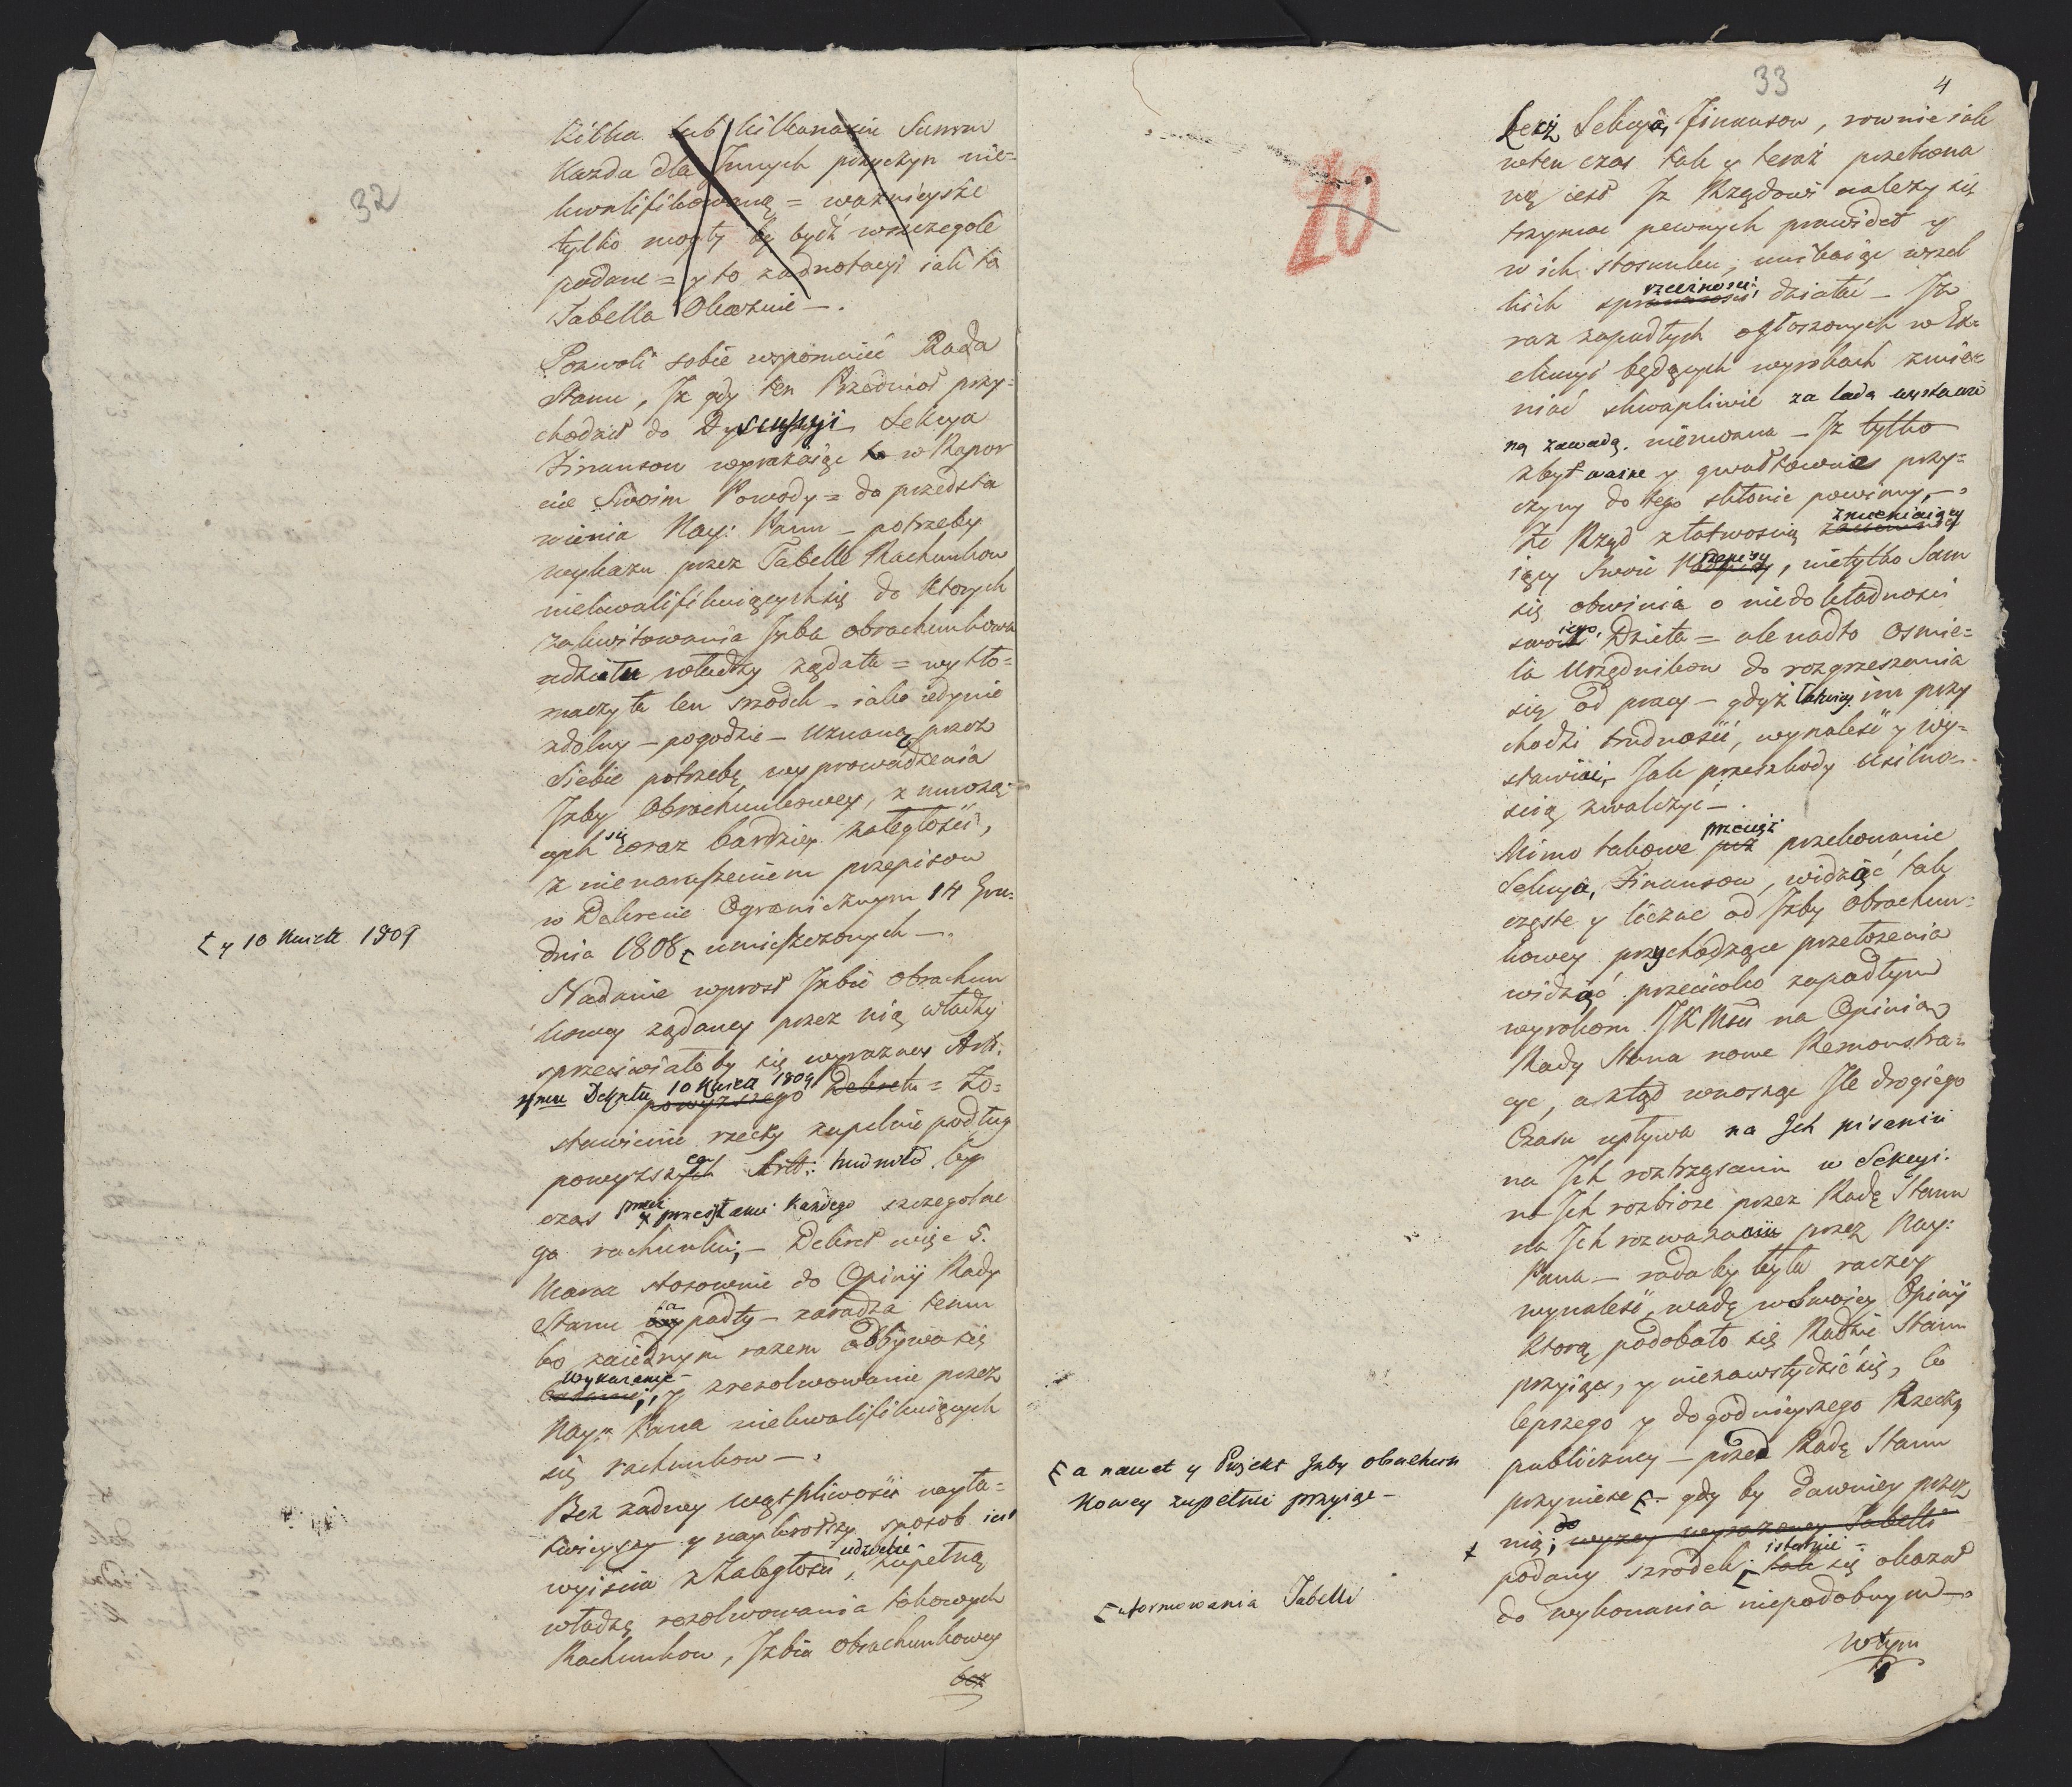 32
Kilka lub kilkanascie Summ
Kazda dla Innych przyczyn nie=
kwalifikowaną = waznieysze
tylko mogły by bydź wszczegole
podane = y to zadnotacyi iak ta
Tabella Okaznie —.
Pozwoli sobie wspomnieć Rada
Stanu, Iz gdy ten Przedmiot przy=
chodził do Dyscussyi Sekcya
Finansow wyrażaiąc w Rapor
cie Swoim Powody = do przedsta
wienia Nay: Panu – potrzeby
wykazu przez Tabelle Rachunkow
niekwalifikuiących się do Ktorych
zakwitowania Izba obrachunkowa
udziału władzy żądała = wytło=
maczyła ten srzodek – iako iedynie
zdolny – pogodzić – Uznaną przez
Siebie potrzebę wyprowadzenia
Izby Obrachunkowey, z mnożą=
cych się coraz bardziey zaległości,
z nienaruszeniem przepisow
w Dekrecie Organicznym 14 Gru=
dnia 1808 [ umieszczonych —.
[ y 10 Kwiet 1809
Nadanie wprost Izbie Obrachun
kowey żądaney przez nią władzy
sprzeciwiałoby się wyrazney Art:
ymu Dekretu 10 Kwiet 1809
powyższego Dekretu = Zo=
stawienie rzeczy zupełnie podług
powyższych Artt: trudniło by
czas przez przesyłanie Każdego szczegolne
go rachunku; – Dekret więc 5.
Marca stosownie do Opinij Rady
Stanu zapadły – zaradza temu
bo zaiednym razem odbywa się
wykazanie y zrezolwowanie przez
Nayº Pana niekwalifikuiących
się rachunkow —.
Bez zadney wątpliwości nayła=
twieyszy y naykrotszy sposob iest
wyiścia z Zaległości, udzielić zupełną
władzę rezolwowania takowych
Rachunkow, Izbie Obrachunkowey
bez
33
4
20
Lecz Sekcya Finansow, rownie iak
wten czas tak y teraz przekona
ną iest Iz Rządowi należy się
trzymac pewnych prawideł y
w ich stosunku, unikaiąc wszel
kich sprzeczności, działać – Iz
raz zapadłych ogłoszonych w Ex=
ekucyi będących wyrokach zmie=
niać skwapliwie za lada wystawio
ną zawadą niemożna – Iz tylko
zbyt ważne y gwałtowne przy=
czyny do tego skłonić powinny, —.
Ze Rząd z łatwością zmieniaiący
iący Swoie Przepisy, nietylko Sam
się obwinia o niedokładności
swoiego Dzieła = ale nadto Osmie=
la Urzędnikow do rozgrzeszania
się od pracy – gdyż łatwiey im przy
chodzi trudność, wynaleść y wy=
stawiać, Jak przeszkody usilno=
scią zwalczyć —.
Mimo takowe przeciąż przekonanie
Sekcya, Finansow, widząc tak
częste y liczne od Izby Obrachun=
kowey przychodzące przełożenia
widząc przeciwko zapadłym
wyrokom JKMci na Opinią
Rady Stanu nowe Remonstra=
cye, a ztąd wnosząc Ile drogiego
Czasu upływa na Ich pisaniu
na Ich roztrząsaniu w Sekcyi.
na Ich rozbiorze przez Radę Stanu
na Ich rozważaniu przez Nay:
Pana – rada by była raczey
wynaleść, wadę w Swoiey Opinij
Ktorą podobało się Radzie Stanu
przyiąc, y niezawstydzić się, Co
lepszego y dogodnieyszego Rzeczy
publiczney – przed Radę Stanu
przyniesie [ – gdy by dawniey przez
[ a nawet y Projekt Izby obrachun
kowey zupełnie przyiąc –
nią; do wyzey wyrazoney Tabelli
podany srzodek [ istotnie – tak się okazał
[ uformowania Tabelli
do wykonania niepodobnym —.
Wtym